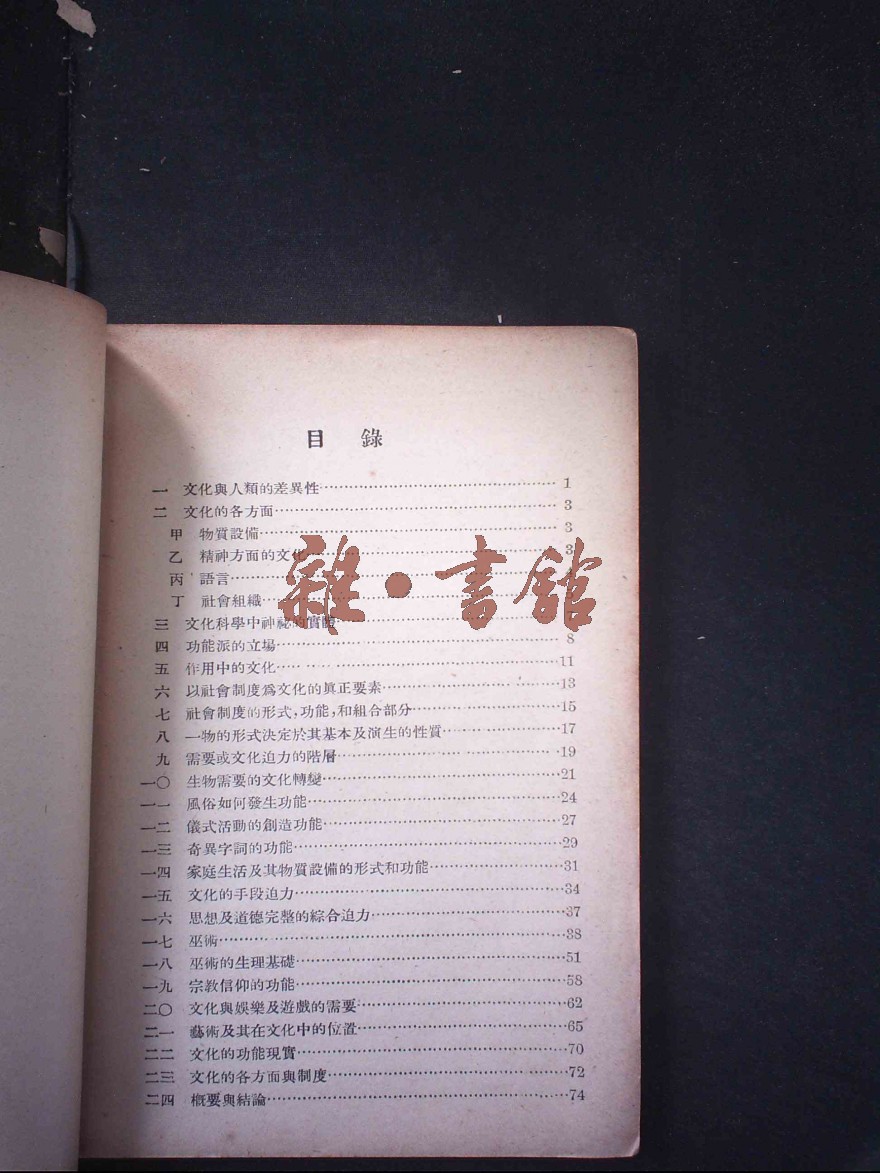 目錄
一 文化與人類的差異性 1
二 文化的各方面 3
甲 物質設備 3
乙 精神方面的文化 3
丙 語言
丁 社會組織
三 文化科學中神祕的實體
四 功能派的立場 8
五 作用中的文化 11
六 以社會制度爲文化的眞正要素 13
七 社會制度的形式,功能,和組合部分 15
八 一物的形式決定於其基本及演生的性質 17
九 需要或文化迫力的階層 19
一〇 生物需要的文化轉變 21
一一 風俗如何發生功能 24
一二 儀式活動的創造功能 27
一三 奇異字詞的功能 29
一四 家庭生活及其物質設備的形式和功能 31
一五 文化的手段迫力 34
一六 思想及道德完整的綜合迫力 37
一七 巫術 38
一八 巫術的生理基礎 51
一九 宗教信仰的功能 58
二〇 文化與娛樂及遊戲的需要 62
二一 藝術及其在文化中的位置 65
二二 文化的功能現實 70
二三 文化的各方面與制度 72
二四 槪要與結論 74
雜·書館